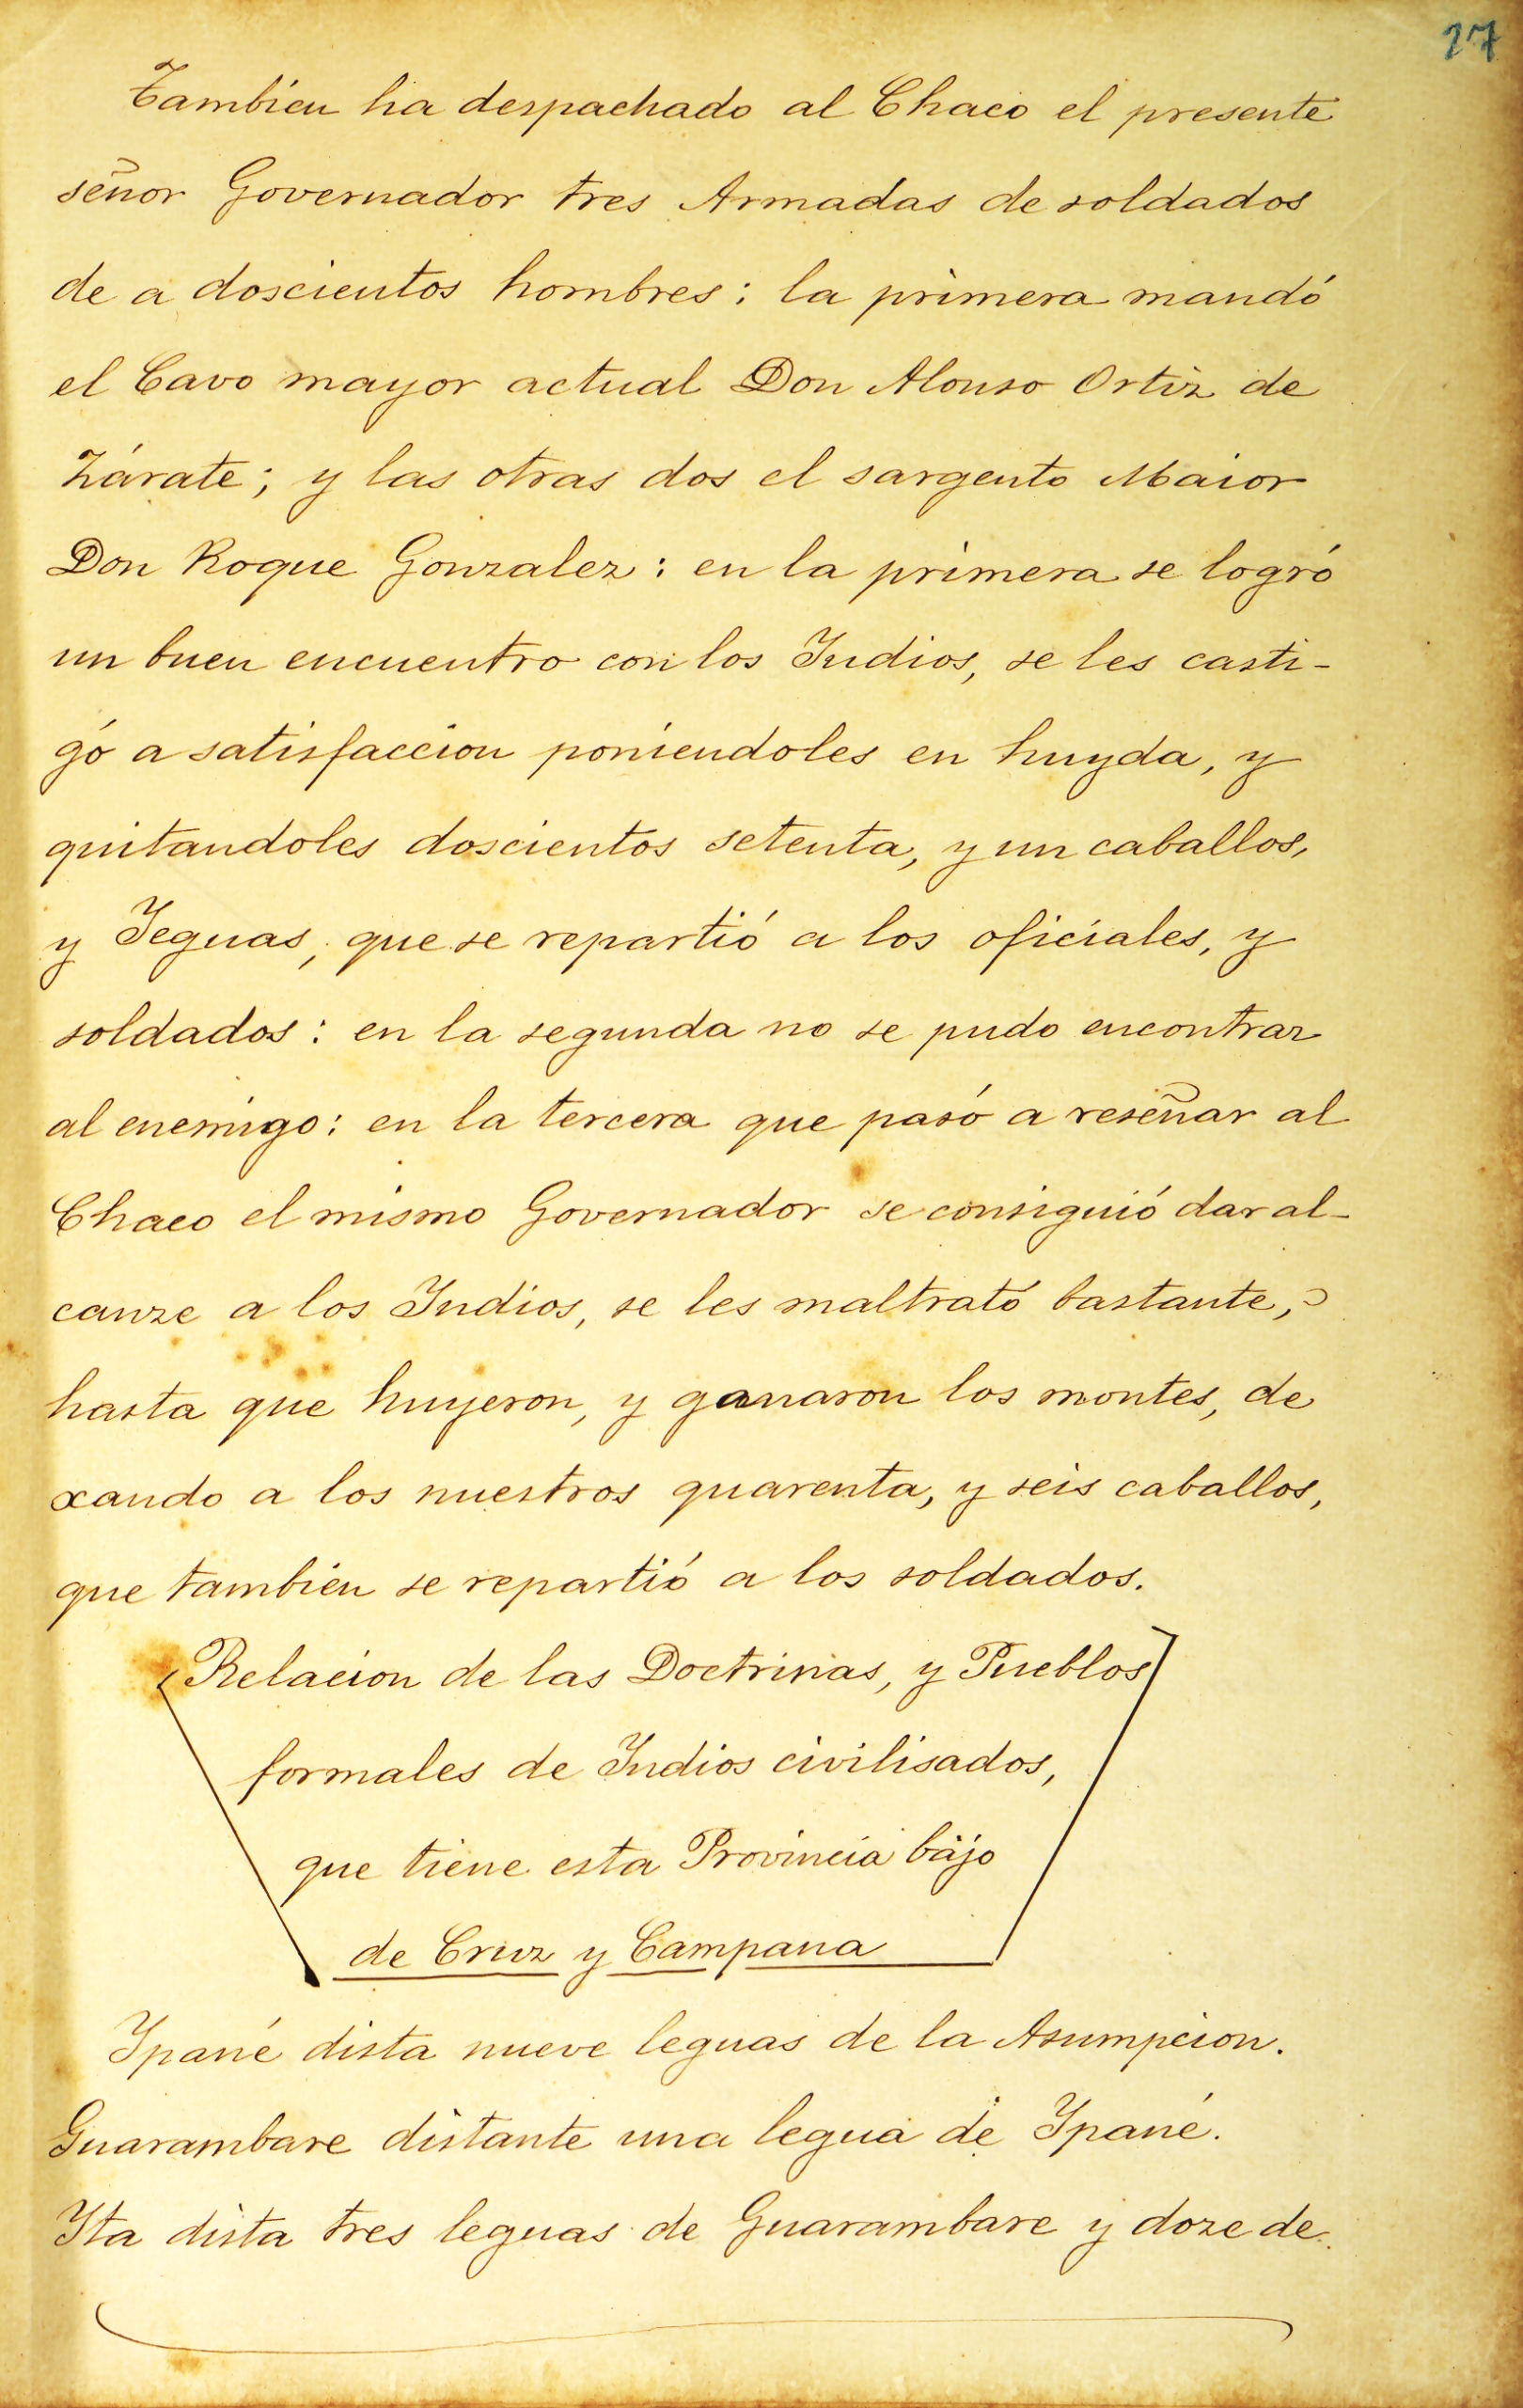 27
Tambien ha despachado al Chaco el presente
señor Governador tres Armadas de soldados
de a doscientos hombres: la primera mandó
el Cavo mayor actual Don Alonso Ortiz de
Zárate; y las otras dos el sargento Maior
Don Roque Gonzalez: en la primera se logró
un buen encuentro con los Indios, se les casti-
gó a satisfaccion poniendoles en huyda, y
quitandoles doscientos setenta, y un caballos,
y Yeguas, que se repartió a los oficiales, y
soldados: en la segunda no se pudo encontrar
al enemigo: en la tercera que pasó a reseñar al
Chaco el mismo Governador se consiguió dar al-
canze a los Indios, se les maltrató bastante,
hasta que huyeron, y ganaron los montes, de
xando a los nuestros quarenta, y seis caballos,
que tambien se repartió a los soldados.
Relacion de las Doctrinas, y Pueblos
formales de Indios civilisados,
que tiene esta Provincia bajo
de Cruz y Campana
Ypané dista nueve leguas de la Asumpcion.
Guarambare distante una legua de Ypané.
Yta dista tres leguas de Guarambare y doze de